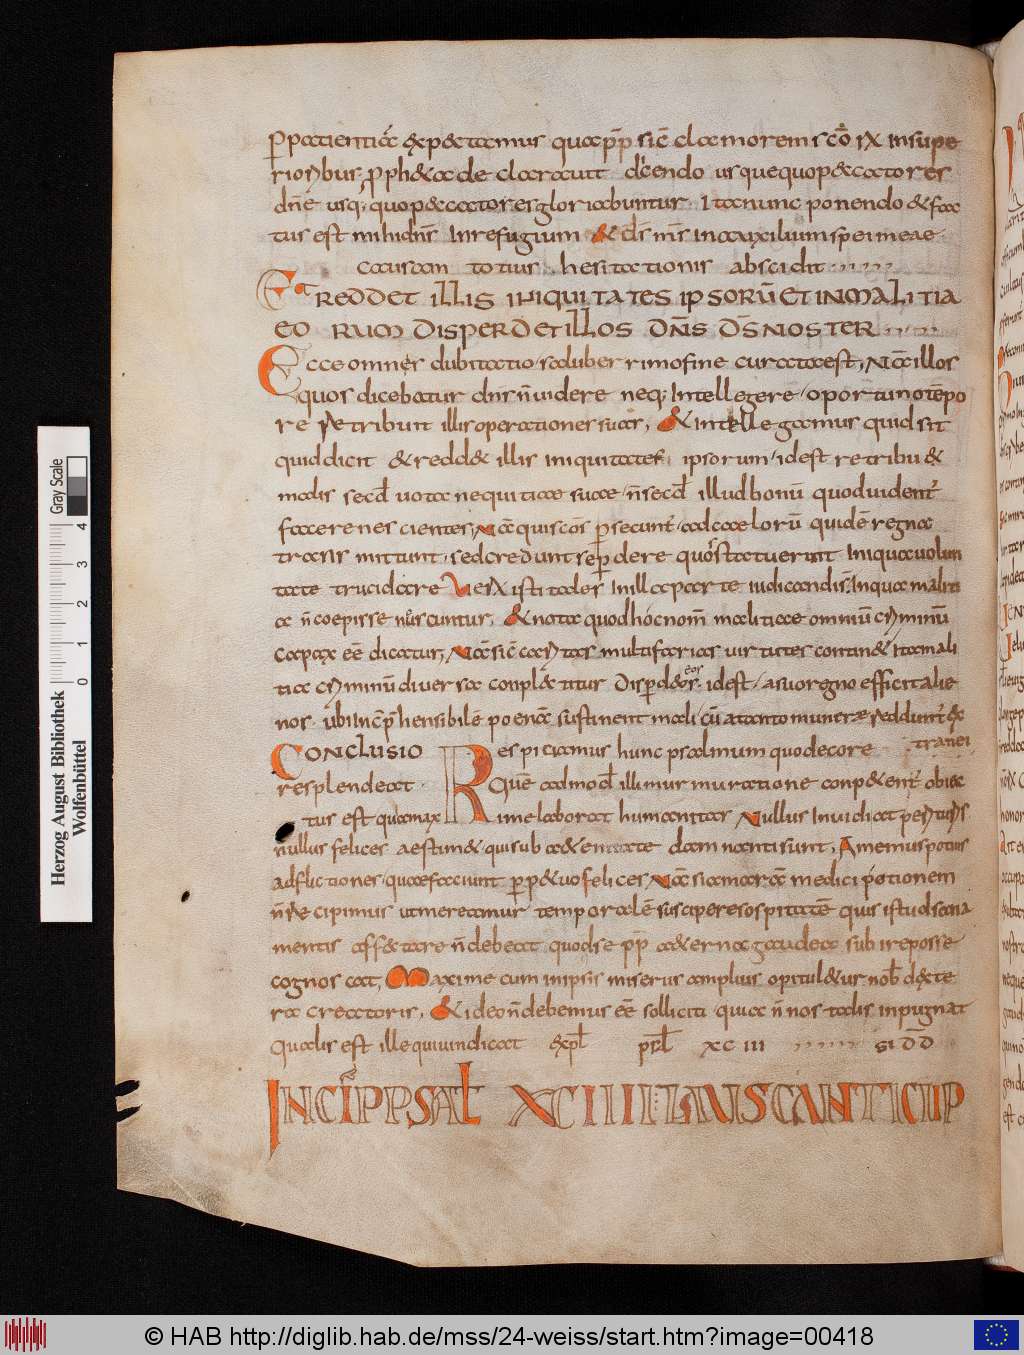 ppatientiā expectamus quapp̄ sic̄ clamorem s͞cō ıx insupe
rioribus ꝓph&a declaravit dicendo usquequo peccatores
dn̄e usq; quo peccatores gloriabuntur. Ita nunc ponendo & fac
tus est mihi dn̄s in refugium & d̄s m̄s in auxilium spei meae.
causam totius hesitationis abscidit
Et REDDET illis INIQUITATES IPSORŪ ET IN MALITIA
EORUM DISPERDET illOS DN̄S DS̄ NOSTER
Ecce omnes dubitatio saluberrimo fine curata est, Nā illos
quos dicebatur dn̄s n̄ videre neq; intellegere oportuno tēpo
re retribuit illis operationes suas, & intellegamus quid sit
quid dicit & redd& illis iniquitates ipsorum, idest retribu&
malis secd̄ vota nequitiae suae n̄ secd̄ illud bonū quod videnť
facere nescientes, Nā qui scōs persecunť ad caelorū quidē regna
trans mittunt, sed credunt se perdere quos statuerunt iniqua volun
tate trucidare Vers ıx isti tales in illa parte iudicandi s̄ in qua maliti
a n̄ coepisse noscuntur, & nota quod hoc nom̄ malitiae omniū criminū
capax eē dicatur, Nā sic̄ caritas multifarias virtutes contin& ita mali
tia criminū diversa conpl&titur Disperd& eos. idest, a suo regno efficit alie
nos. ubi incp̄hensibile poena sustinent mali, cū a tanto munere reddunť ex
tranei
CONCLUSIO Respiciamus hunc psalmum quo decore
resplendeat. Quē admod̄ illi murmuratione conp&enť obiec
tus est qua max ime laborat humanitas Nullus invidiat peritūs
nullus felices aestim& qui sub ad&ernitate damnanti sunt, Amemus potius
adflictiones, quae faciunt perp&uo felices, Nā si amarā medici potionem
n̄ recipimus ut mereamur temporalē suscipere sospitatē quis istud sana
mentis aff&tare n̄ debeat quod se pp̄ ad &erna gaudea subire posse
cognoscat, Maxime cum in ipsis miseris amplius opitul&ur nob̄ dexte
ra creatoris, & ideo n̄ debemus eē solliciti quia n̄ nos talis inpugnat
qualis est ille qui vindicat expl̄ psl̄ xc iii si d̄d̄
INCIP PSAL XCIIII LAUS CANTICI IP
Herzog August Bibliothek
Wolfenbüttel
0 1 2 3 4
Gray Scale
© HAB http://diglib.hab.de/mss/24-weiss/start.htm?image=00418